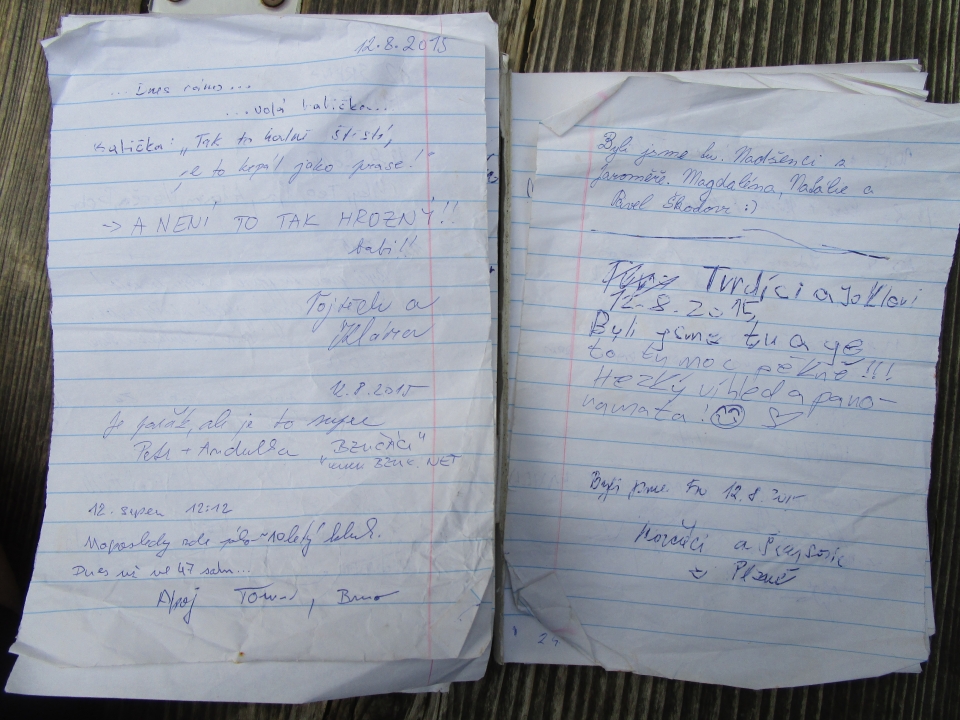 12.8.2015
...dnes ráno...
...volá babička...
Babička: „Tak to hodně štěstí,
je to kopec jako prase!"
→ A NENÍ TO TAK HROZNÝ!!
babi!!
Vojtěch a
Klára
12.8.2015
Je pařák, ale je to super
Petr + Andulka „BZUČÁCI"
"www.BZUK.NET
12. srpen 12:12
Naposledy zde jako 10letý kluk.
Dnes už ve 47 sám...
Ahoj Tomáš, Brno
Byli jsme tu. Nadšenci z
Jaroměře. Magdaléna, Natálie a
Pavel Škodovi :)
Tvrdíci a Joklovi
12.8.2015,
Byli jsme tu a ye
to tu moc pěkné!!!
Hezký vihled a pano-
namata!
Byli jsme tu 12.8.2015
a
z Plzně
24